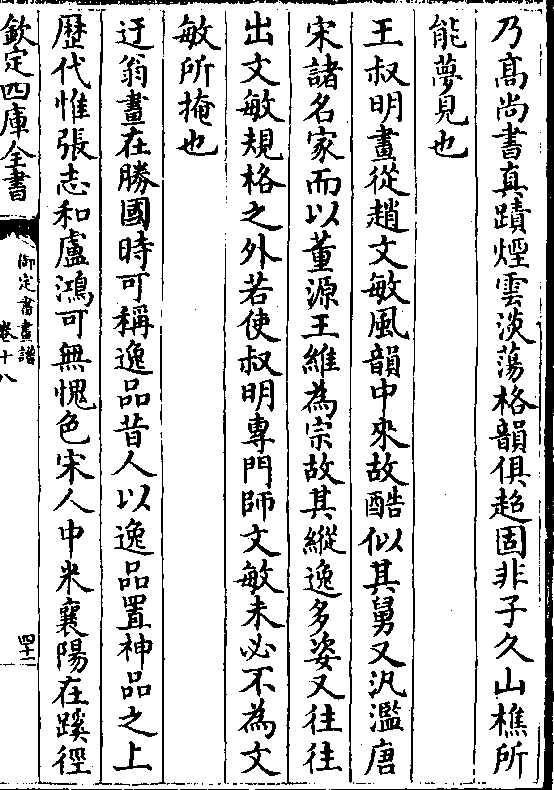 乃髙尚書真蹟煙雲淡蕩格韻俱超固非子久山樵所
能夢見也
王叔明畫從趙文敏風韻中來故酷似其舅又汎濫唐
宋諸名家而以董源王維為宗故其縱逸多姿又往往
出文敏規格之外若使叔明專門師文敏未必不為文
敏所掩也
迂翁畫在勝國時可稱逸品昔人以逸品置神品之上
歴代惟張志和盧鴻可無愧色宋人中米襄陽在蹊徑
欽定四庫全書
御定書畫譜
卷十八
四十二